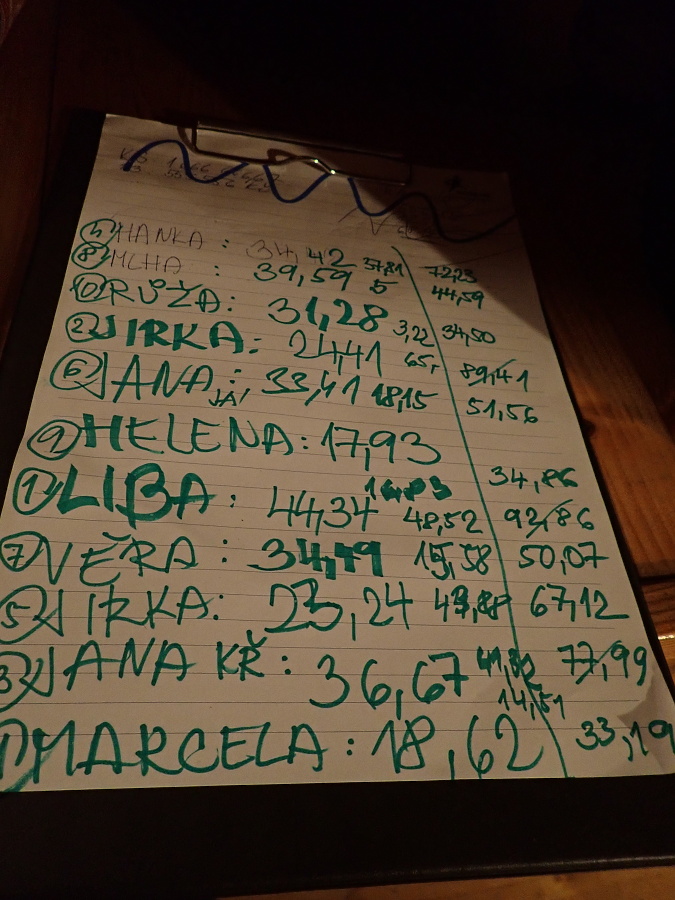 ④ HANKA : 34,42 37,81 72,23
⑧ MLHA : 39,59 5 44,59
⑩ RŮŽA: 31,28 3,22 34,50
② JIRKA: 24,41 65,- 89,41
⑥ JANA JÁ! : 33,41 18,15 51,56
⑨ HELENA: 17,93 16,93 34,86
① LIBA : 44,34 48,52 92,86
⑦ VĚRA : 34,49 15,58 50,07
⑤ JIRKA: 23,24 43,88 67,12
③ JANA KŘ: 36,67 41,32 77,99
MARCELA : 18,62 14,57 33,19